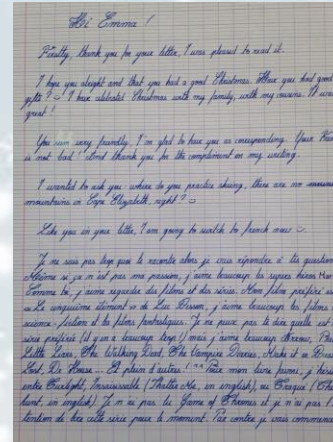 Hi Emma !
Firstly, thank you for your letter, I was pleased to read it.
I hope you alright and that you had a good Christmas. Have you had good
gifts ? I have celebrated Christmas with my family, with my cousins. It was
great !
You very friendly, I'm glad to have you as corresponding. Your French
is not bad ! And thank you for the compliment on my writing.
I wanted to ask you : where do you practice skiing, there are no
mountains in Cape Elizabeth, right ?
Like you in your letter, I am going to switch to french now
Je ne sais pas trop quoi te raconter alors je vais répondre à tes question
Même si ça n'est pas ma passion, j'aime beaucoup les super héros
Comme toi, j'aime regarder des films et des séries. Mon film préféré
"Le cinquième élément" de Luc Besson, j'aime beaucoup les films
science-fiction et les films fantastiques. Je ne peux pas te dire quelle est
série préférée (il y en a beaucoup trop !) mais j'aime beaucoup Arrow, Pre
Little Liars, The Walking Dead, The Vampire Diaries,
Lost, Dr House... Et plein d'autres ! Pour mon livre , j'hés
entre Twilight, Insaisissable (Shatter Me, en english), ou
 in english). Je n'ai pas lu Game of Thrones et je n'ai pas l'
tention de lire cette série pour le moment. Par contre je vais commencer